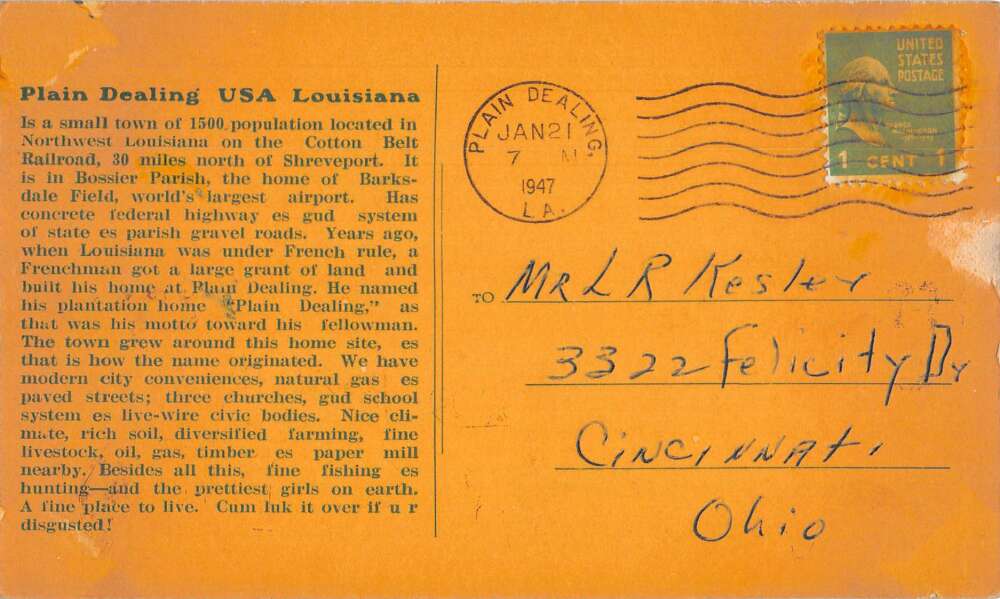 Plain Dealing USA Louisiana
Is a small town of 1500 population located in
Northwest Louisiana on the Cotton Belt
Railroad, 30 miles north of Shreveport. It
is in Bossier Parish, the home of Barks-
dale Field, world's largest airport. Has
concrete federal highway es gud system
of state es parish gravel roads. Years ago,
when Louisiana was under French rule, a
Frenchman got a large grant of land and
built his home at Plain Dealing. He named
his plantation home "Plain Dealing," as
that was his motto toward his fellowman.
The town grew around this home site, es
that is how the name originated. We have
modern city conveniences, natural gas es
paved streets; three churches, gud school
system es live-wire civic bodies. Nice cli-
mate, rich soil, diversified farming, fine
livestock, oil, gas, timber es paper mill
nearby. Besides all this, fine fishing es
hunting—and the prettiest girls on earth.
A fine place to live. Cum luk it over if u r
disgusted!
PLAIN DEALING,
JAN 21
7 M
1947
LA.
UNITED
STATES
POSTAGE
1 CENT 1
TO Mr L R Kesler
3322 Felicity Dr
Cincinnati
Ohio